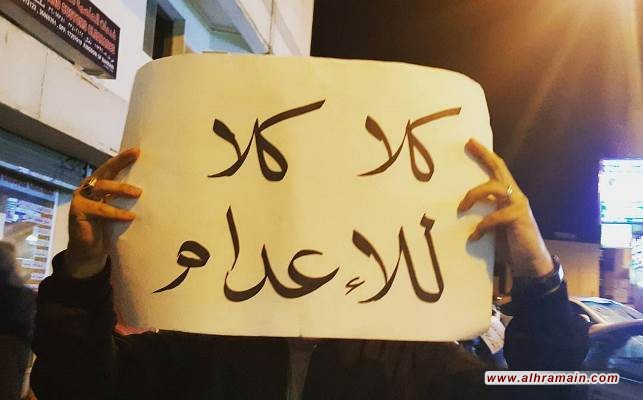 كلا كلا
للإعدام
www.alhramain.com